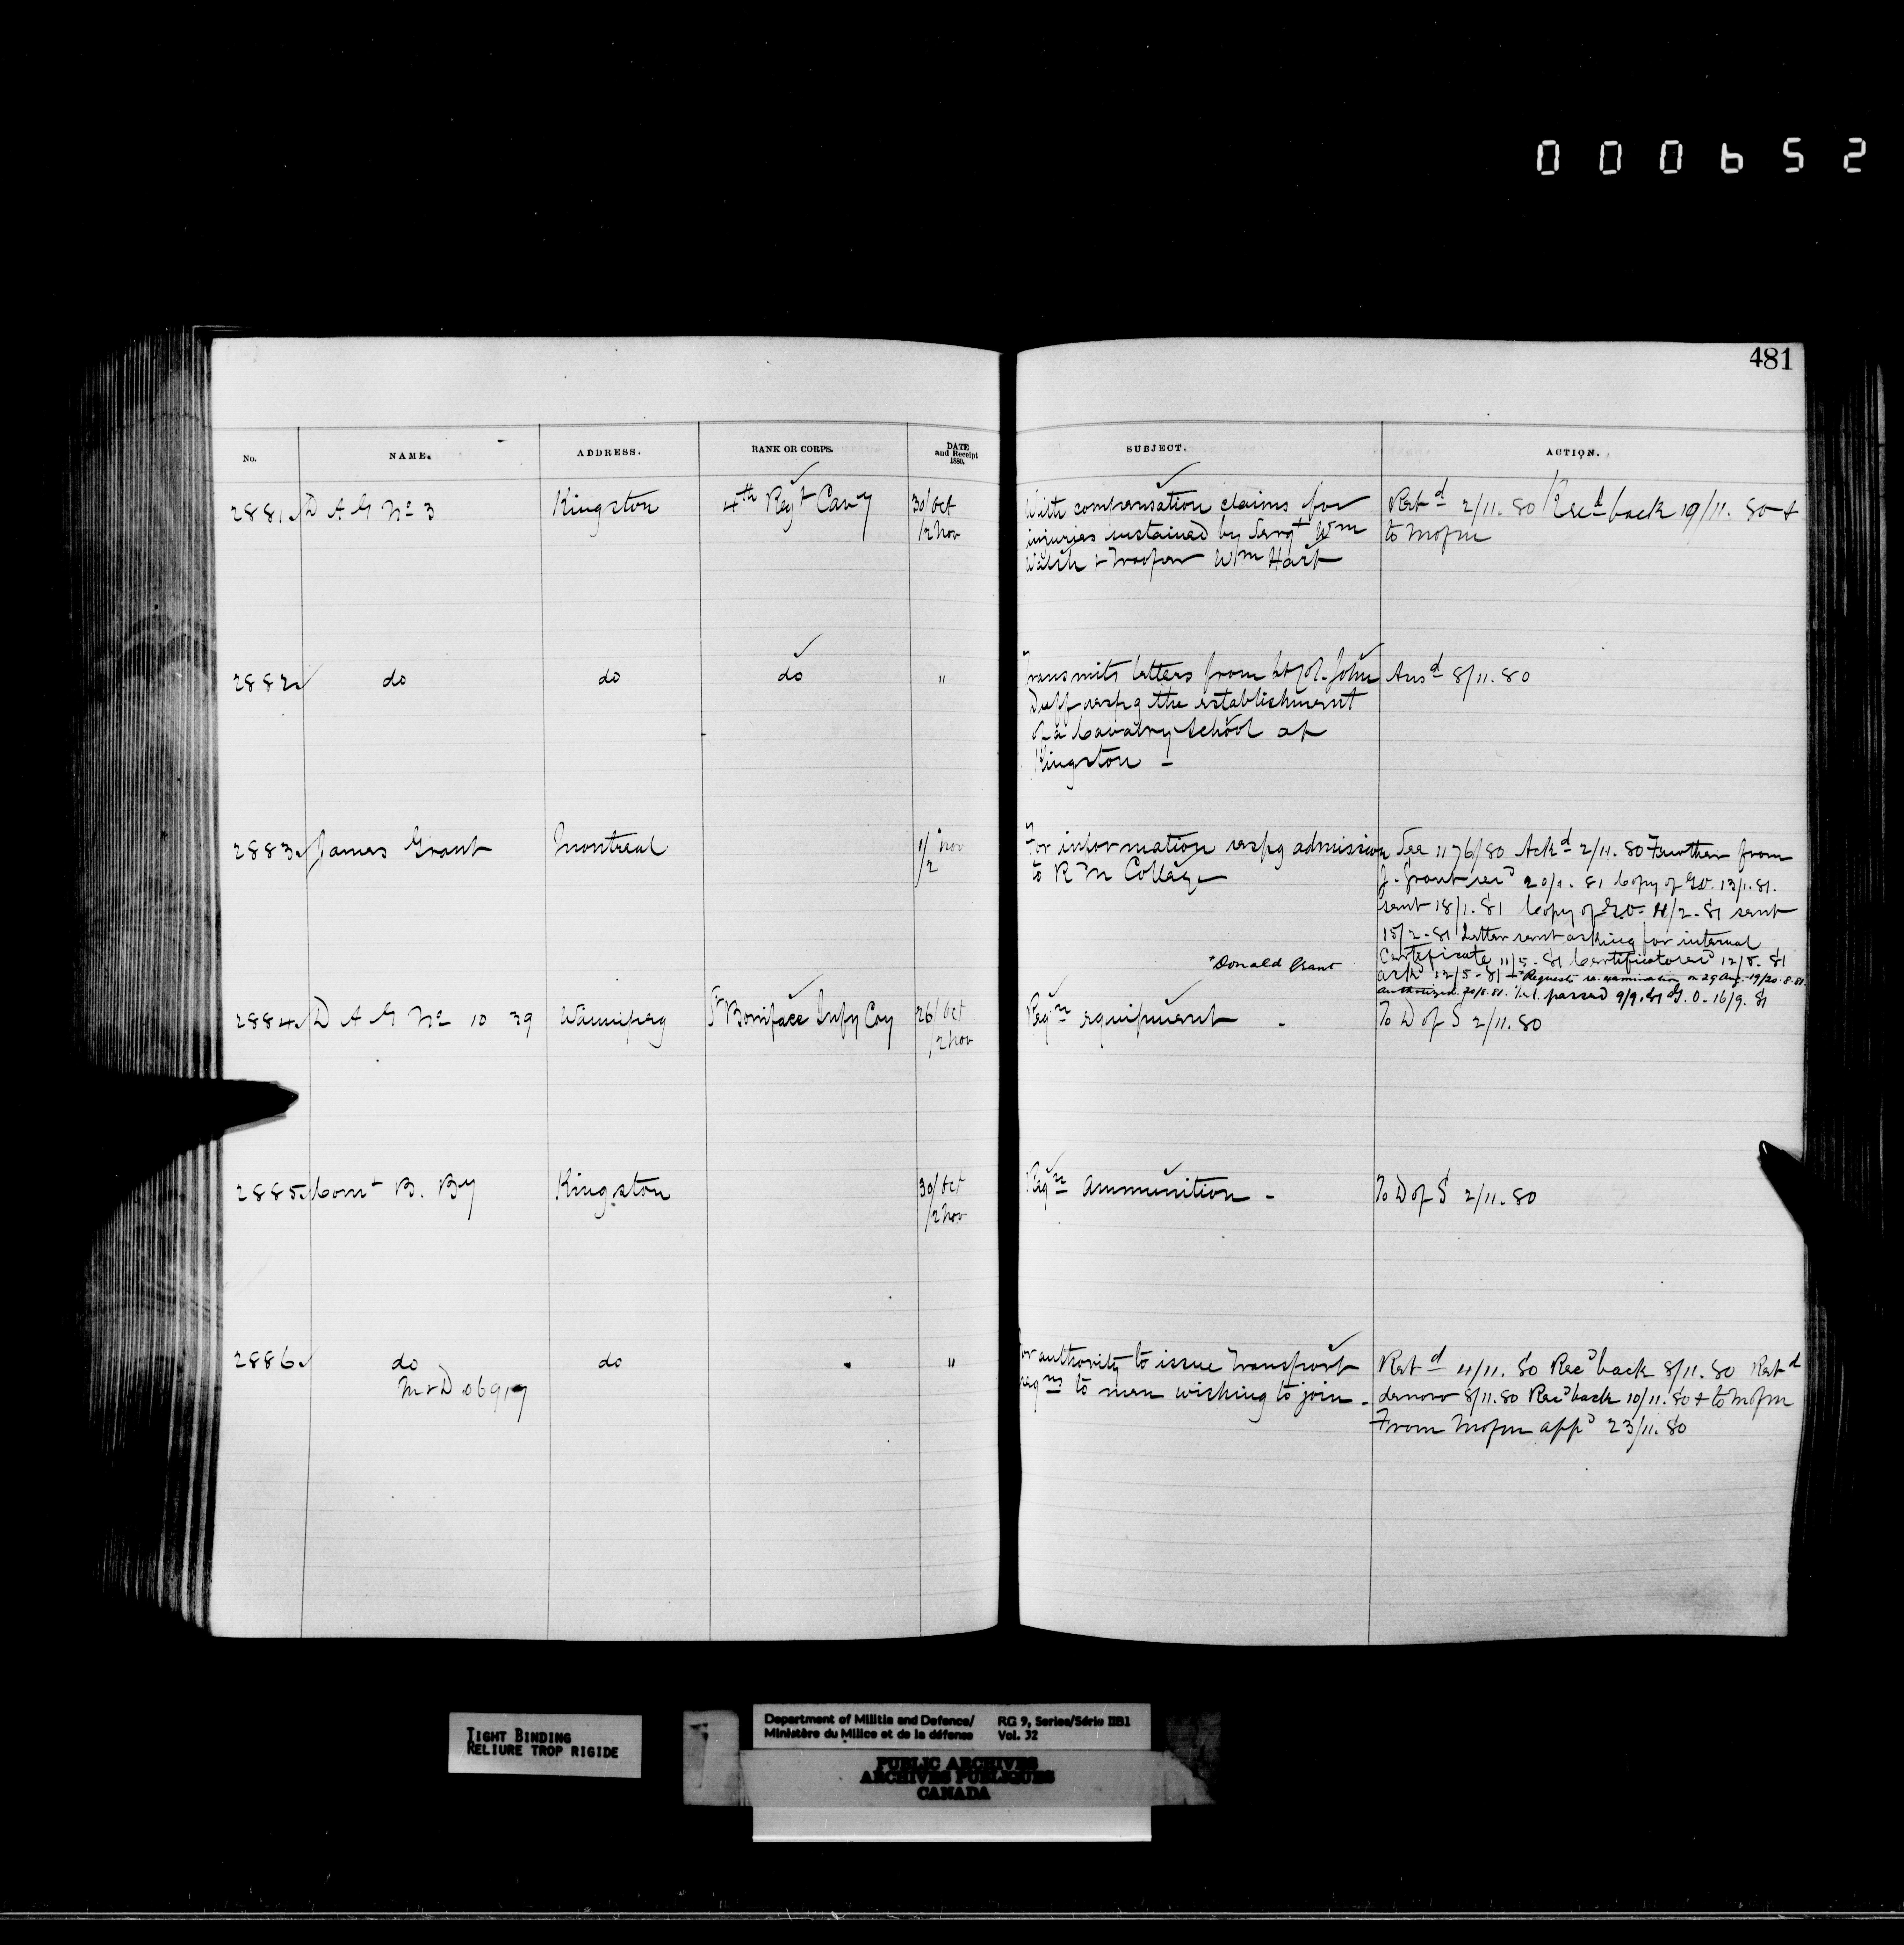 000652
481
No. NAME. ADDRESS. RANK OR CORPS. DATE and Receipt 1880. SUBJECT. ACTION.
2881 D A G No 3 Kingston 4th Regt Cavy 30/Oct /2 Nov
With compensation claims for
injuries sustained by Sergt Wm
Walsh & Trooper Wm Hart
Retd 2/11. 80 Recd back 19/11. 80 &
to Mofm
2882 do do do "
Transmits letters from Lt Col. John
Duff respg the establishment
of a Cavalry School at
Kingston -
Ansd 8/11. 80
2883 James Grant Montreal 1/ Nov /2
For information respg admission
to R M College
*Donald Grant
See 1176/80 Ackd 2/11. 80 Further from
J. Grant recd 20/1. 81 Copy of GO. 13/1. 81.
sent 18/1. 81 Copy of GO. 11/2 - 81 sent
15/2 - 81 Letter sent asking for internal
Certificate 11/5 - 81 Certificate recd 12/5. 81
ackd 12/5 - 81 *Requests re-examination on 29 Aug. 19/20. 8. 81.
authorized 20/8. 81. passed 9/9. 81 G. O. 16/9. 81
2884 D A G No 10 39 Winnipeg St Boniface Infy Coy 26/Oct /2 Nov
Reqn equipment -
To D of S 2/11. 80
2885 Comt B. By Kingston 30/Oct /2 Nov
Reqn ammunition -
To D of S 2/11. 80
2886 do do "
M & D 06917
For authority to issue Transport
reqns to men wishing to join -
Retd 4/11. 80 Recd back 8/11. 80 Retd
denovo 8/11. 80 Recd back 10/11. 80 & to Mofm
From Mofm appd 23/11. 80
TIGHT BINDING
RELIURE TROP RIGIDE
Department of Militia and Defence/ RG 9, Series/Série IIB1
Ministère du Milice et de la défense Vol. 32
PUBLIC ARCHIVES
ARCHIVES PUBLIQUES
CANADA